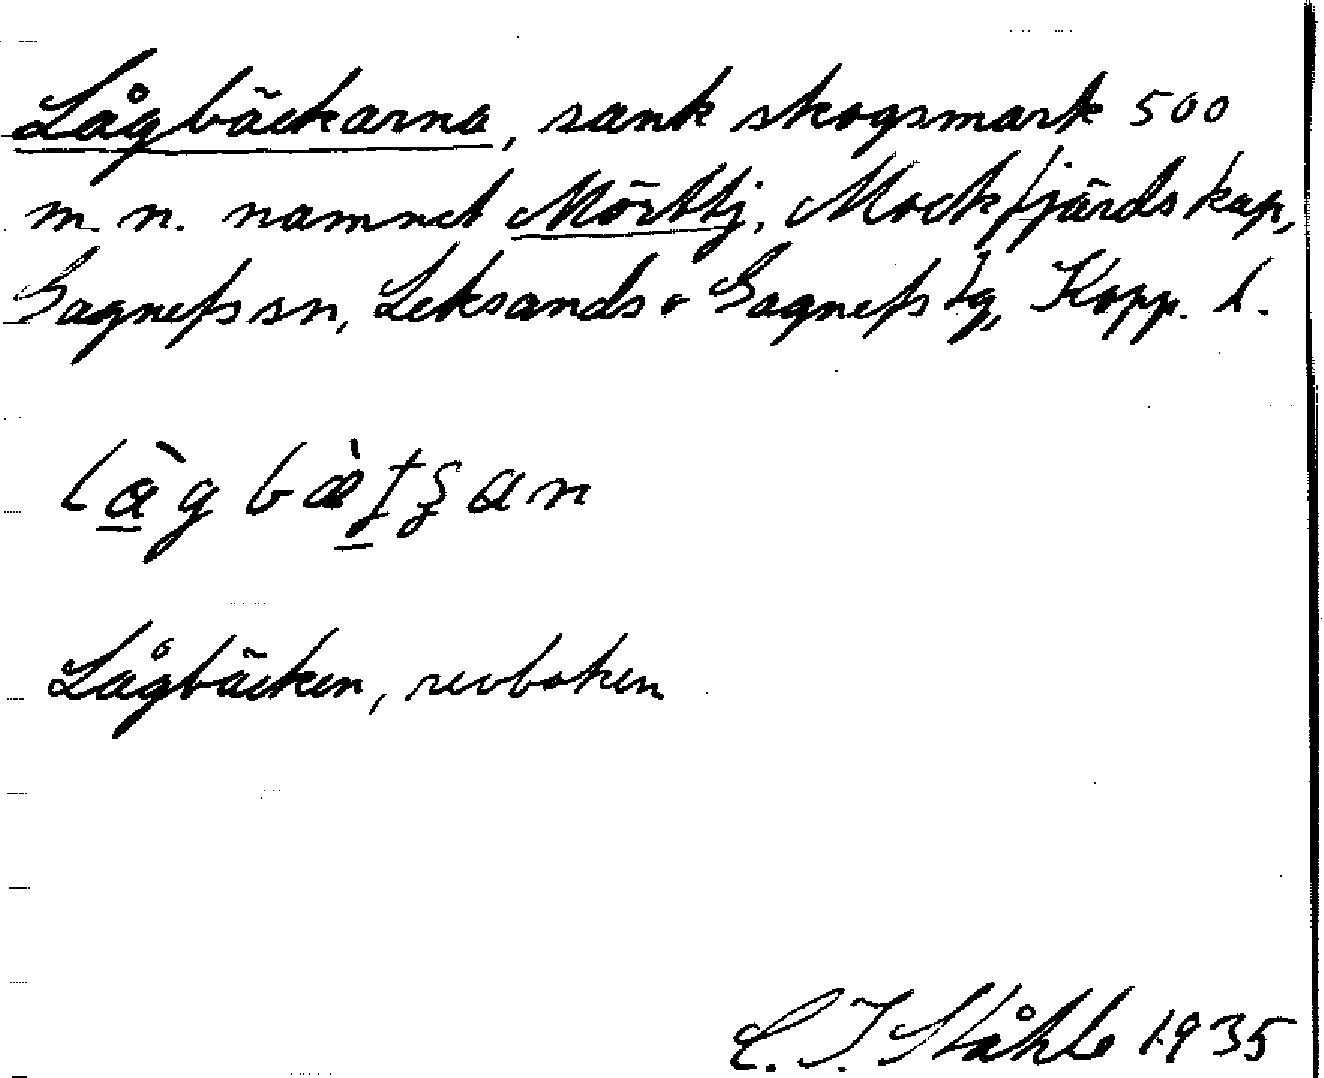 Lågbäckarna, sank skogsmark 500
m. n. namnet Mörttj, Mockfjärds kap,
Gagnefs sn, Leksands o Gagnefs tg, Kopp. l.
Lågbäcken, revboken
C. I. Ståhle 1935